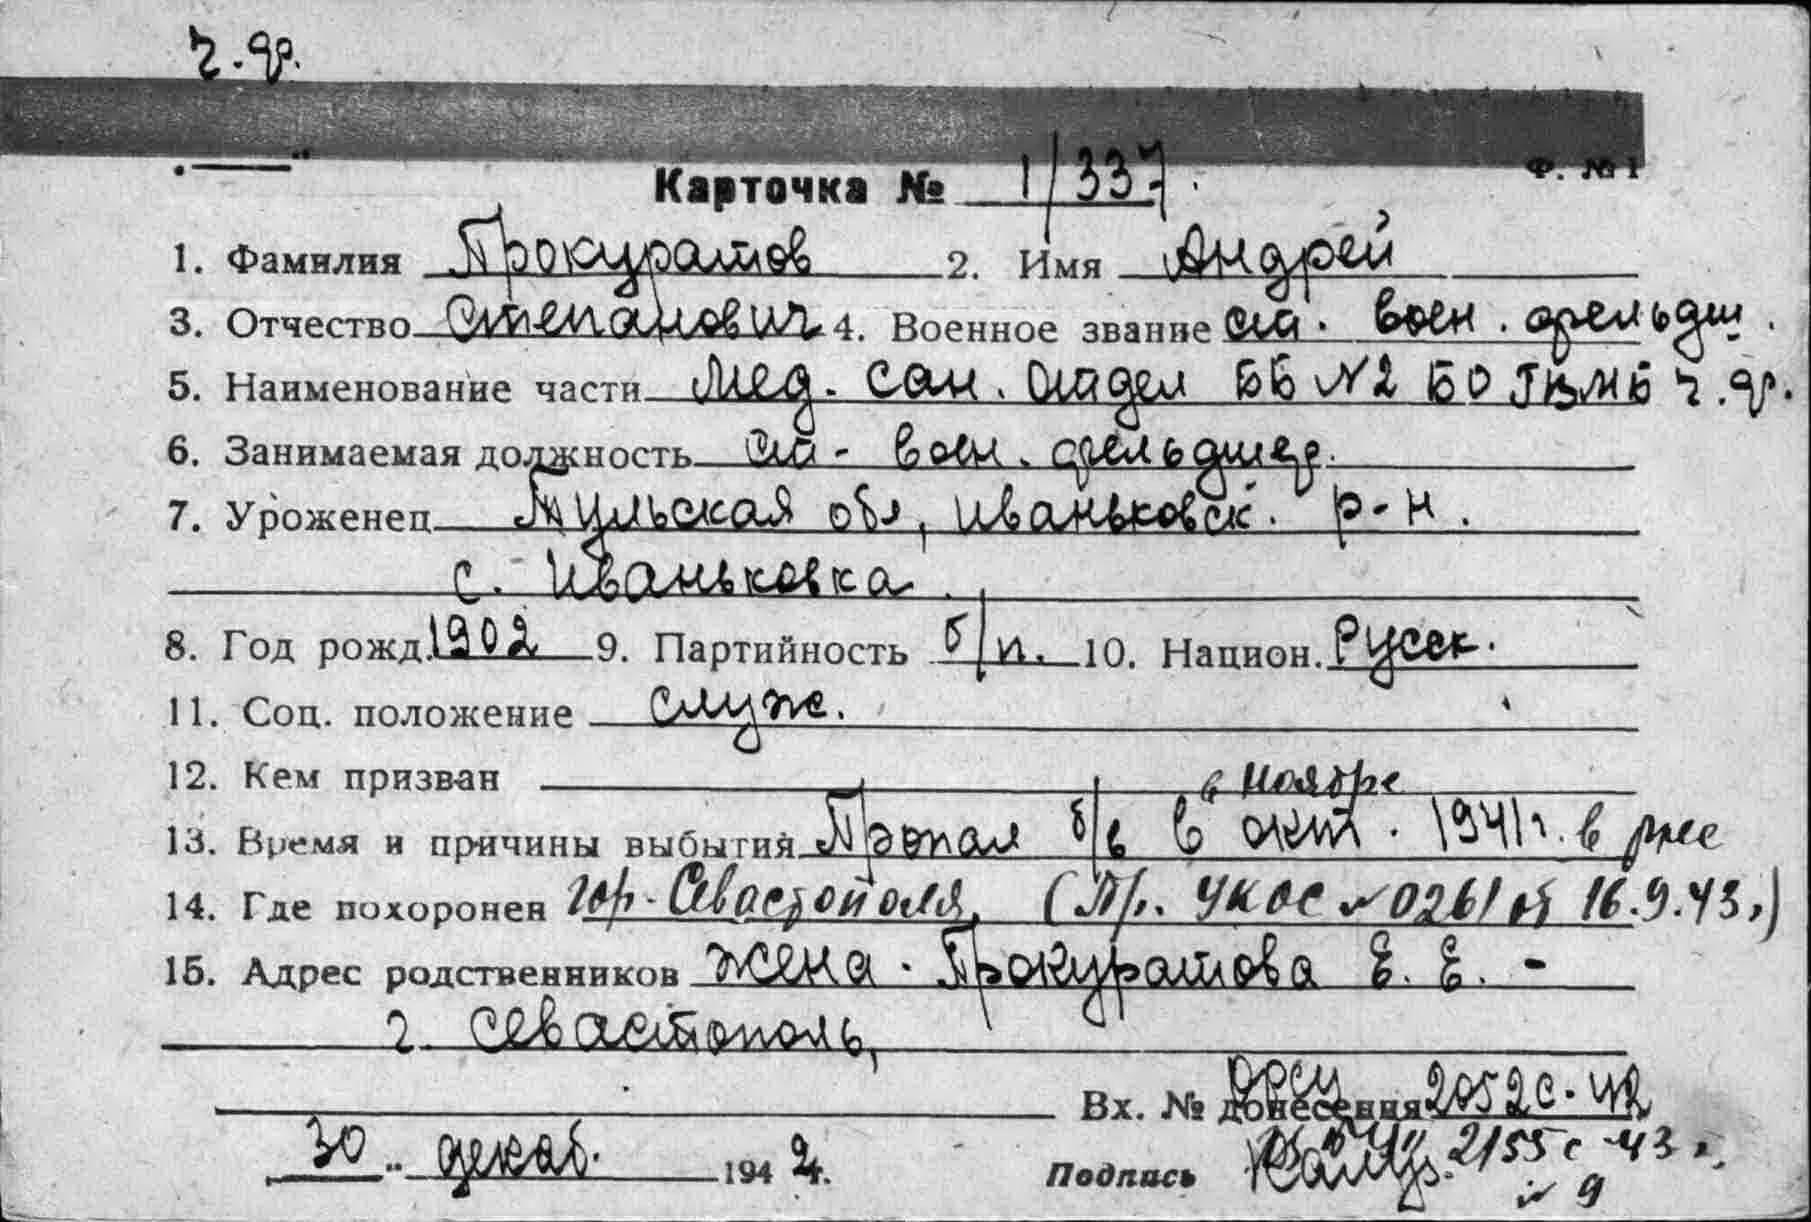 ч.ф.
Ф. №1
Карточка № 1/337.
1. Фамилия Прокуратов 2. Имя Андрей
3. Отчество Степанович 4. Военное звание ст. воен. фельдш.
5. Наименование части Мед. сан. отдел ББ №2 БО ГВМБ ч.ф.
6. Занимаемая должность ст- воен. фельдшер.
7. Уроженец Тульская обл, Иваньковск. р-н.
с. Иваньковка.
8. Год рожд. 1902 9. Партийность б/п. 10. Национ. Русск.
11. Соц. положение служ.
12. Кем призван
в ноябре
13. Время и причины выбытия Пропал б/в в окт. 1941г. в р-не
14. Где похоронен гор. Севастополя, (Пр. УКОС №0261 от 16.9.43г)
15. Адрес родственников жена. Прокуратова Е. Е. -
г. Севастополь,
Вх. № донесения 2052с-42
30 " декаб. 1942г.
Подпись 2155с-43г.
№ 9